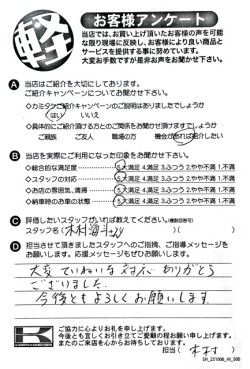 軽
お客様アンケート
当店では、お買い上げ頂いたお客様の声を可能
な限り現場に反映し、お客様により良い商品と
サービスを提供する事に努めています。
大変お手数ですが是非お声をお聞かせ下さい。
A 当店はご紹介を大切にしております。
ご紹介キャンペーンについてお聞かせ下さい。
◇カミタケご紹介キャンペーンのご説明はありましたでしょうか
はい いいえ
◇具体的にご紹介頂ける方とのご関係をお聞かせ頂けますでしょうか
ご親族 ご友人 職場の方 機会があれば紹介したい
B 当店を実際にご利用になった印象をお聞かせ下さい。
◇総合的な満足度 5.大満足 4.満足 3.ふつう 2.やや不満 1.不満
◇スタッフの対応 5.大満足 4.満足 3.ふつう 2.やや不満 1.不満
◇お店の雰囲気、清掃 5.大満足 4.満足 3.ふつう 2.やや不満 1.不満
◇納車時のお車の状態 5.大満足 4.満足 3.ふつう 2.やや不満 1.不満
C 評価したいスタッフがいれば教えてください。(複数回答可)
スタッフ名( 木村海斗 )
D 担当させて頂きましたスタッフへのご指摘、ご指導メッセージを
お願いします。応援メッセージもぜひお願いします。
大変ていねいな対応ありがとう
ございました。
今後ともよろしくお願いします。
ご協力に心よりお礼を申し上げます。
今後とも宜しくお引き立てご愛顧の程お願い申し上げます。
またのご来店を心からお待ちしております。
担当( 木村 )